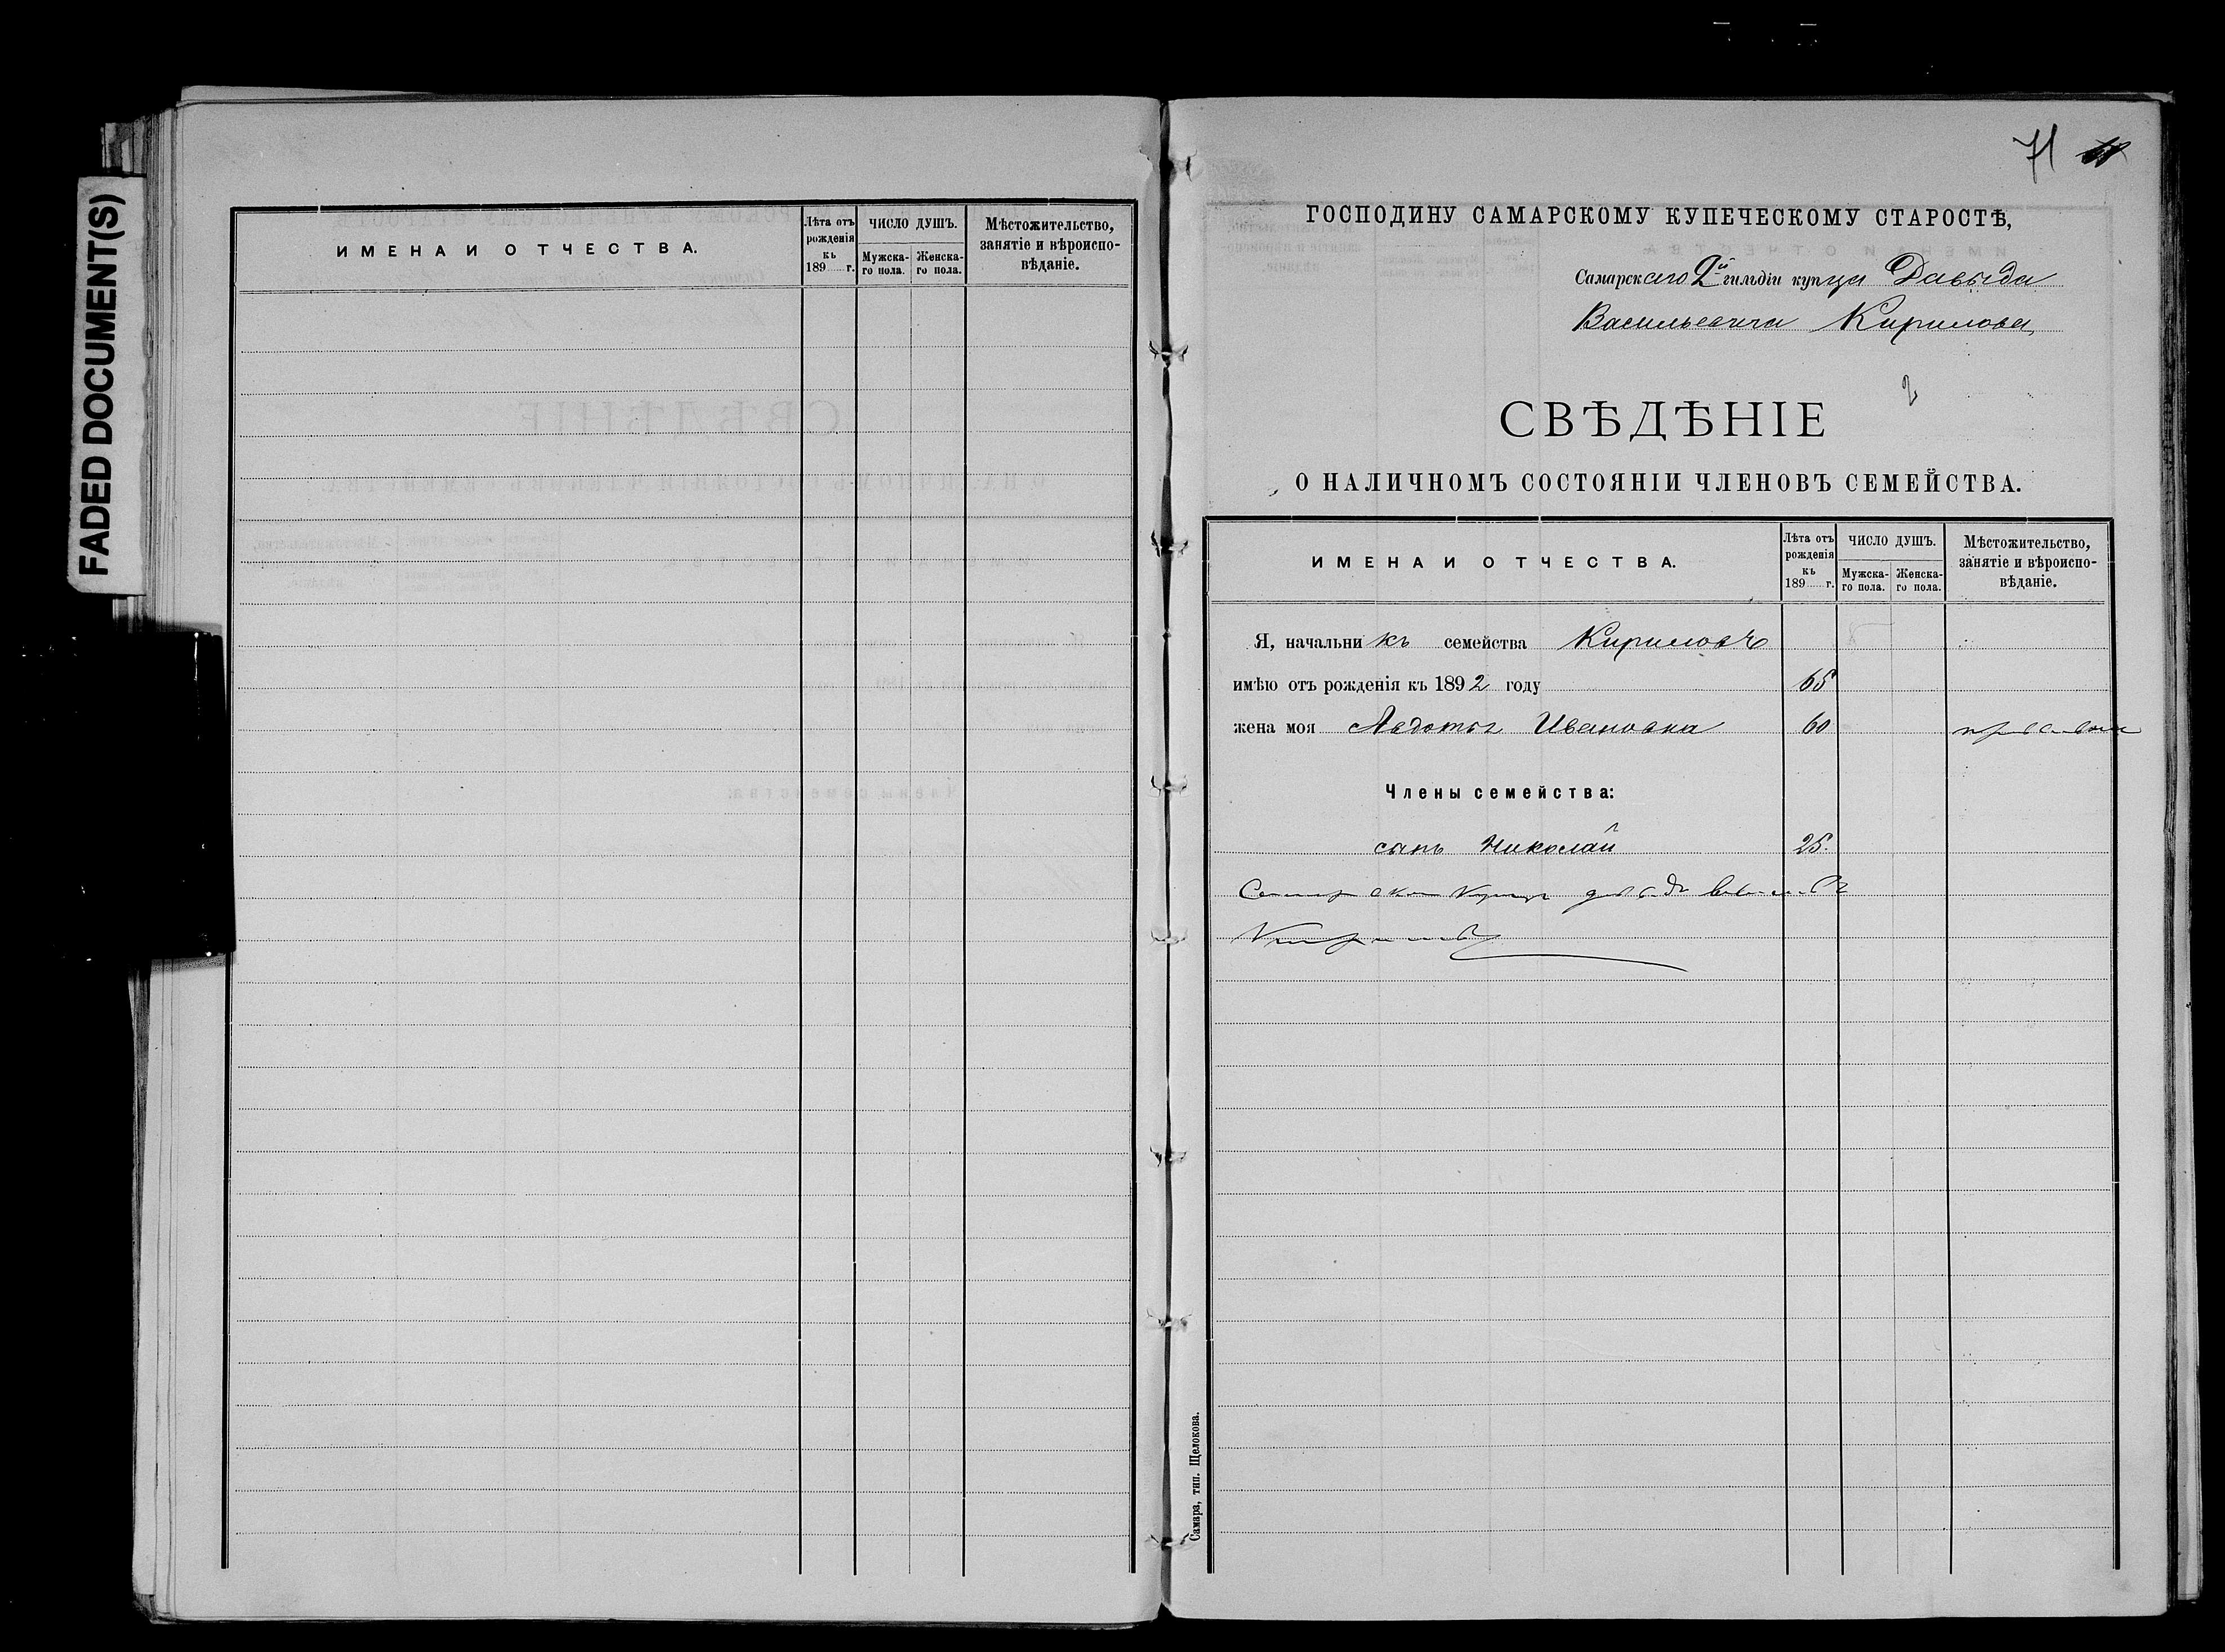 FADED DOCUMENT(S)
ИМЕНА И ОТЧЕСТВА.
Лѣта отъ рожденія къ 189 г.
ЧИСЛО ДУШЪ.
Мужска-го пола.
Женска-го пола.
Мѣстожительство, занятіе и вѣроиспо-вѣданіе.
71
ГОСПОДИНУ САМАРСКОМУ КУПЕЧЕСКОМУ СТАРОСТѢ,
Самарскаго 2й гильдіи купца Давыда
Васильевича Кирилова,
СВѢДѢНІЕ
О НАЛИЧНОМЪ СОСТОЯНІИ ЧЛЕНОВЪ СЕМЕЙСТВА.
ИМЕНА И ОТЧЕСТВА.
Лѣта отъ рожденія къ 189 г.
ЧИСЛО ДУШЪ.
Мужска-го пола.
Женска-го пола.
Мѣстожительство, занятіе и вѣроиспо-вѣданіе.
Я, начальникъ семейства Кириловъ
имѣю отъ рожденія къ 1892 году 65
жена моя Авдотья Ивановна 60
Члены семейства:
сынъ Николай 25.
Самара, тип. Щелокова.